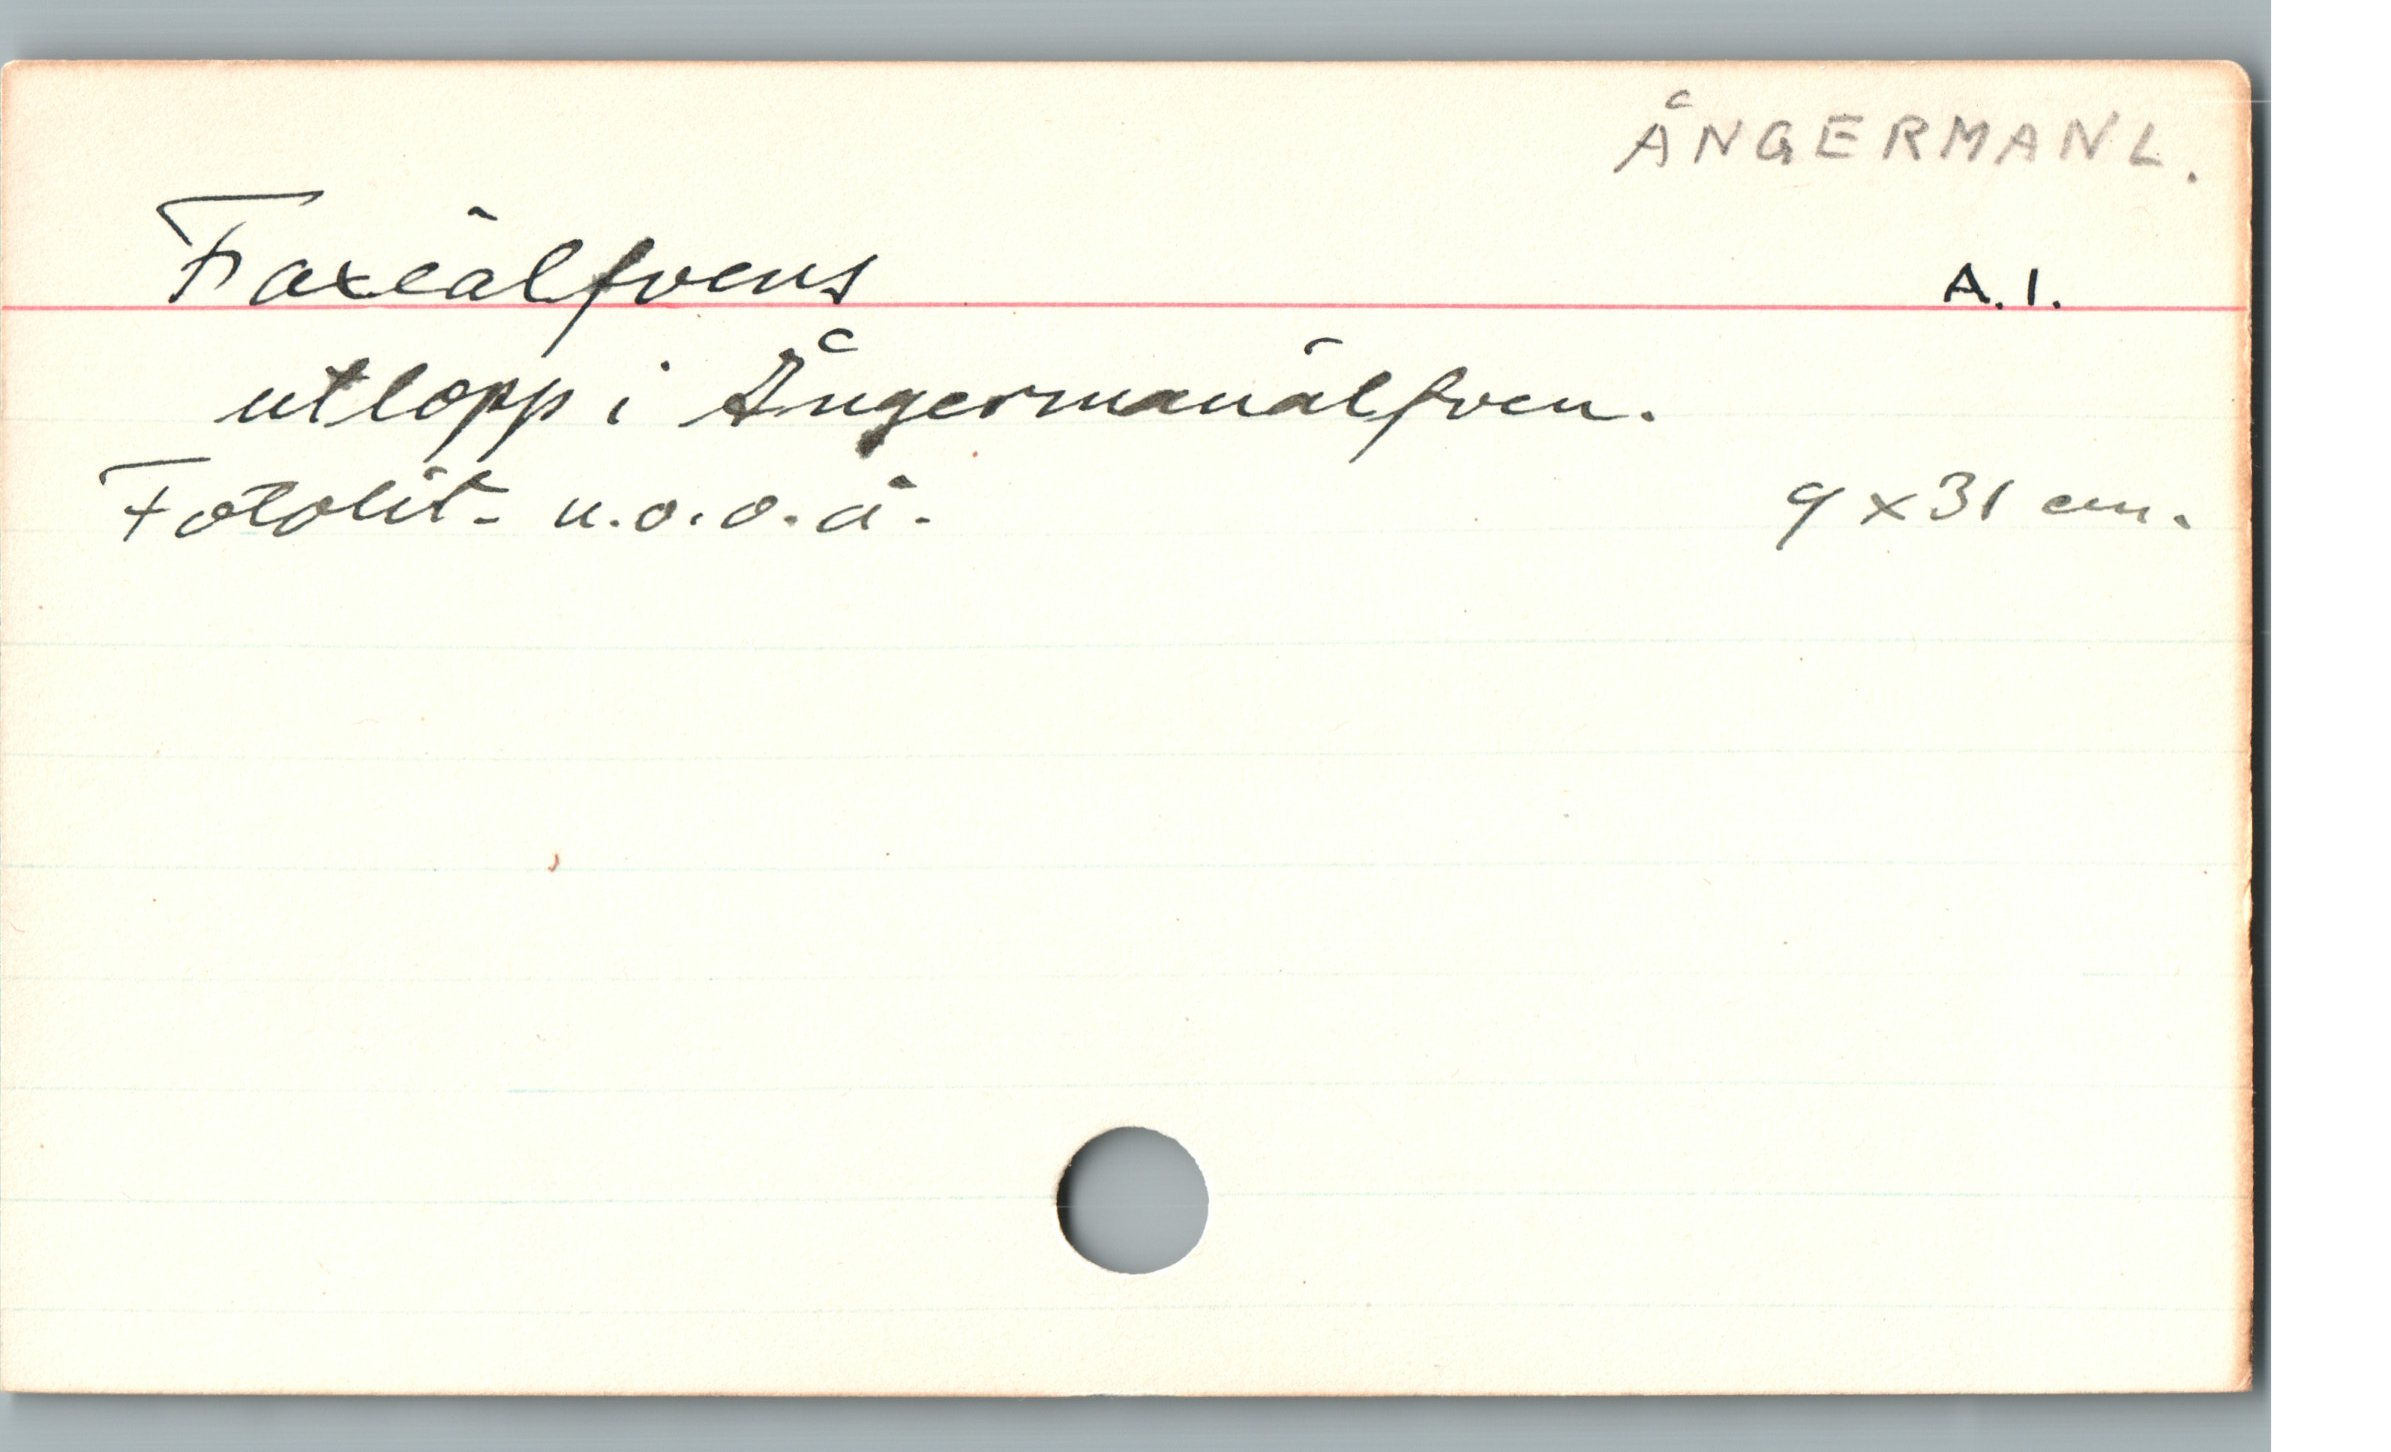 ÅNGERMANL.
Faxeälfvens A.1.
utlopp i Ångermanälfven.
Fotolit. u.o.o.å. 9 x 31 cm.